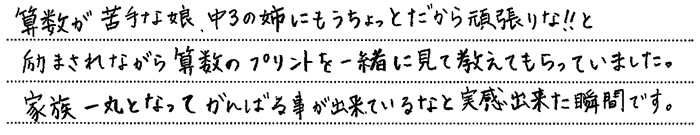 算数が苦手な娘、中3の姉にもうちょっとだから頑張りな!!と
励まされながら算数のプリントを一緒に見て教えてもらっていました。
家族一丸となってがんばる事が出来ているなと実感出来た瞬間です。